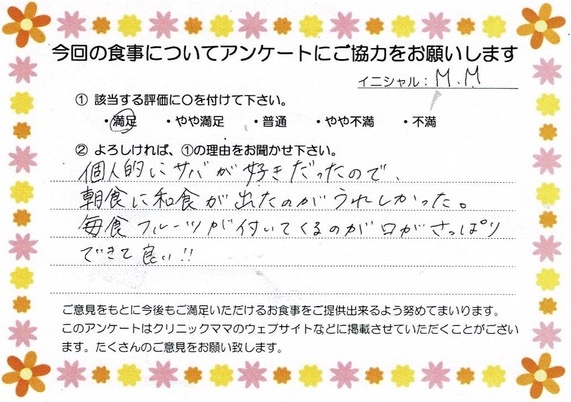 今回の食事についてアンケートにご協力をお願いします
イニシャル：M.M
① 該当する評価に○を付けて下さい。
・満足 ・やや満足 ・普通 ・やや不満 ・不満
② よろしければ、①の理由をお聞かせ下さい。
個人的にサバが好きだったので、
朝食に和食が出たのがうれしかった。
毎食フルーツが付いてくるのが口がさっぱり
できて良い!!
ご意見をもとに今後もご満足いただけるお食事をご提供出来るよう努めてまいります。
このアンケートはクリニックママのウェブサイトなどに掲載させていただくことがござい
ます。たくさんのご意見をお願い致します。